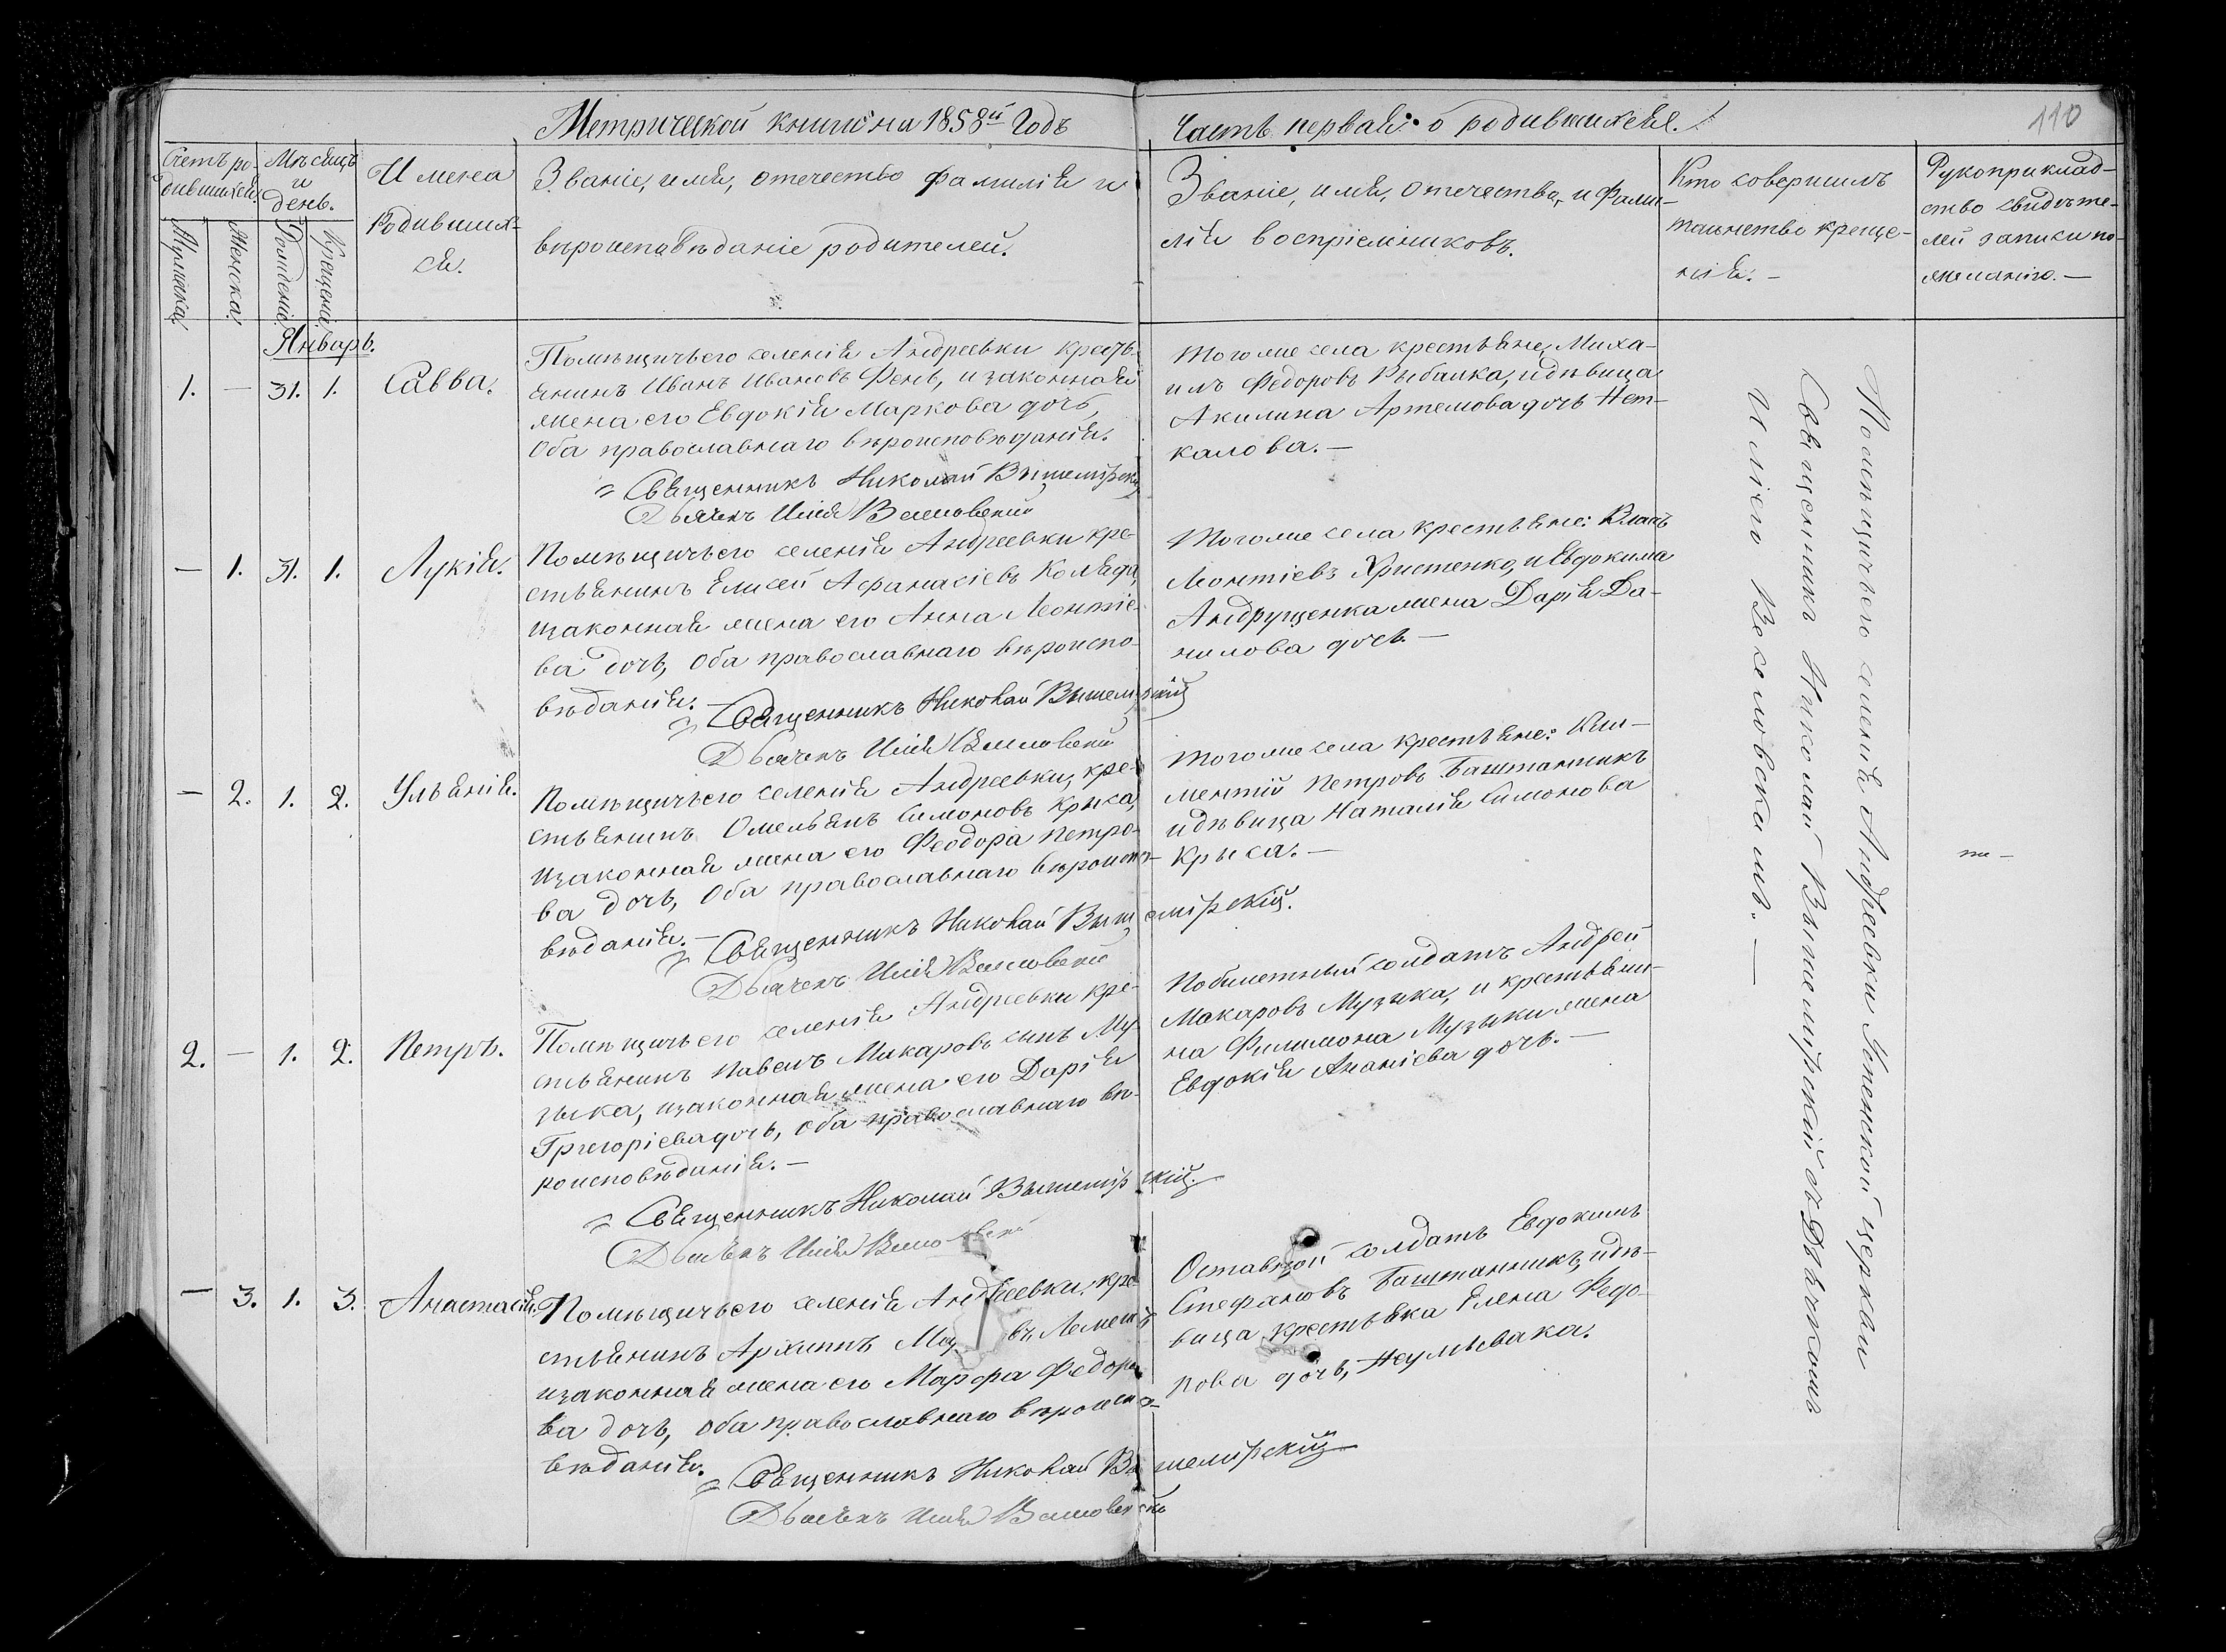 Метрической книги на 1858й Годъ
Часть первая: о родившихся.
110
Счетъ ро-
дившихся.
Мужеска.
Женска.
Мѣсяцъ
и
день.
Рожденіе.
Крещеніе.
Имена
Родивших-
ся.
Званіе, имя, отечество фамилія и
вѣроисповѣданіе родителей.
Званіе, имя, отечество, и фами-
лія воспріемниковъ.
Кто совершилъ
таинство креще-
нія. —
Рукоприклад-
ство свидѣте-
лей записи по-
желанію. —
Январь.
1. — 31. 1. Савва.
Помѣщичьего селенія Андреевки кресть-
янинъ Иванъ Ивановъ Фень, и законная
жена его Евдокія Маркова дочь,
Оба православнаго вѣроисповѣданія.
Священникъ Николай Вышемірскій
Дьячекъ Илія Веселовскій
Того же села крестьяне, Миха-
илъ Федоровъ Рыбалка, и дѣвица
Акилина Артемова дочь Нет-
калова. —
— 1. 31. 1. Лукія.
Помѣщичьего селенія Андреевки кре-
стьянинъ Елисей Афанасіевъ Коляда,
и законная жена его Анна Леонтіе-
ва дочь, Оба православнаго вѣроиспо-
вѣданія. —
Священникъ Николай Вышемірскій
Дьячекъ Илія Веселовскій
Того же села крестьяне: Власъ
Леонтіевъ Христенко, и Евдокима
Андрущенка жена Дарія Да-
нилова дочь —
— 2. 1. 2. Ульянія.
Помѣщичьего селенія Андреевки, кре-
стьянинъ Омельянъ Симоновъ Крыса,
и законная жена его Феодора Петро-
ва дочь, Оба православнаго вѣроиспо-
вѣданія. —
Священникъ Николай Вышемірскій.
Дьячекъ Илія Веселовскій
Того же села крестьяне: Кли-
ментій Петровъ Баштанникъ
и дѣвица Наталія Симонова
Крыса. —
2. — 1. 2. Петръ.
Помѣщичьего селенія Андреевки кре-
стьянинъ Павелъ Макаровъ сынъ Му-
зыка, и законная жена его Дарія
Григоріева дочь, оба православнаго вѣ-
роисповѣданія. —
Священникъ Николай Вышемірскій. —
Дьячекъ Илія Веселовскій
Побилетный солдатъ Андрей
Макаровъ Музыка, и крестьяни-
на Филимона Музыки жена
Евдокія Ананіева дочь. —
— 3. 1. 3. Анастасія.
Помѣщичьего селенія Андреевки, кре-
стьянинъ Архипъ въ
и законная жена его Марфа Федоро-
ва дочь, оба православнаго вѣроиспо-
вѣданія.
Священникъ Николай Вышемірскій
Дьячекъ Илія Веселовскій
Оставной солдатъ Евдокимъ
Стефановъ Баштанникъ, и дѣ-
вица крестьянка Елена Федо-
рова дочь,
Помѣщичьего селенія Андреевки Успенской церкви
Священникъ Николай Вышемірскій съ Дьячкомъ
Иліею Веселовскимъ. —